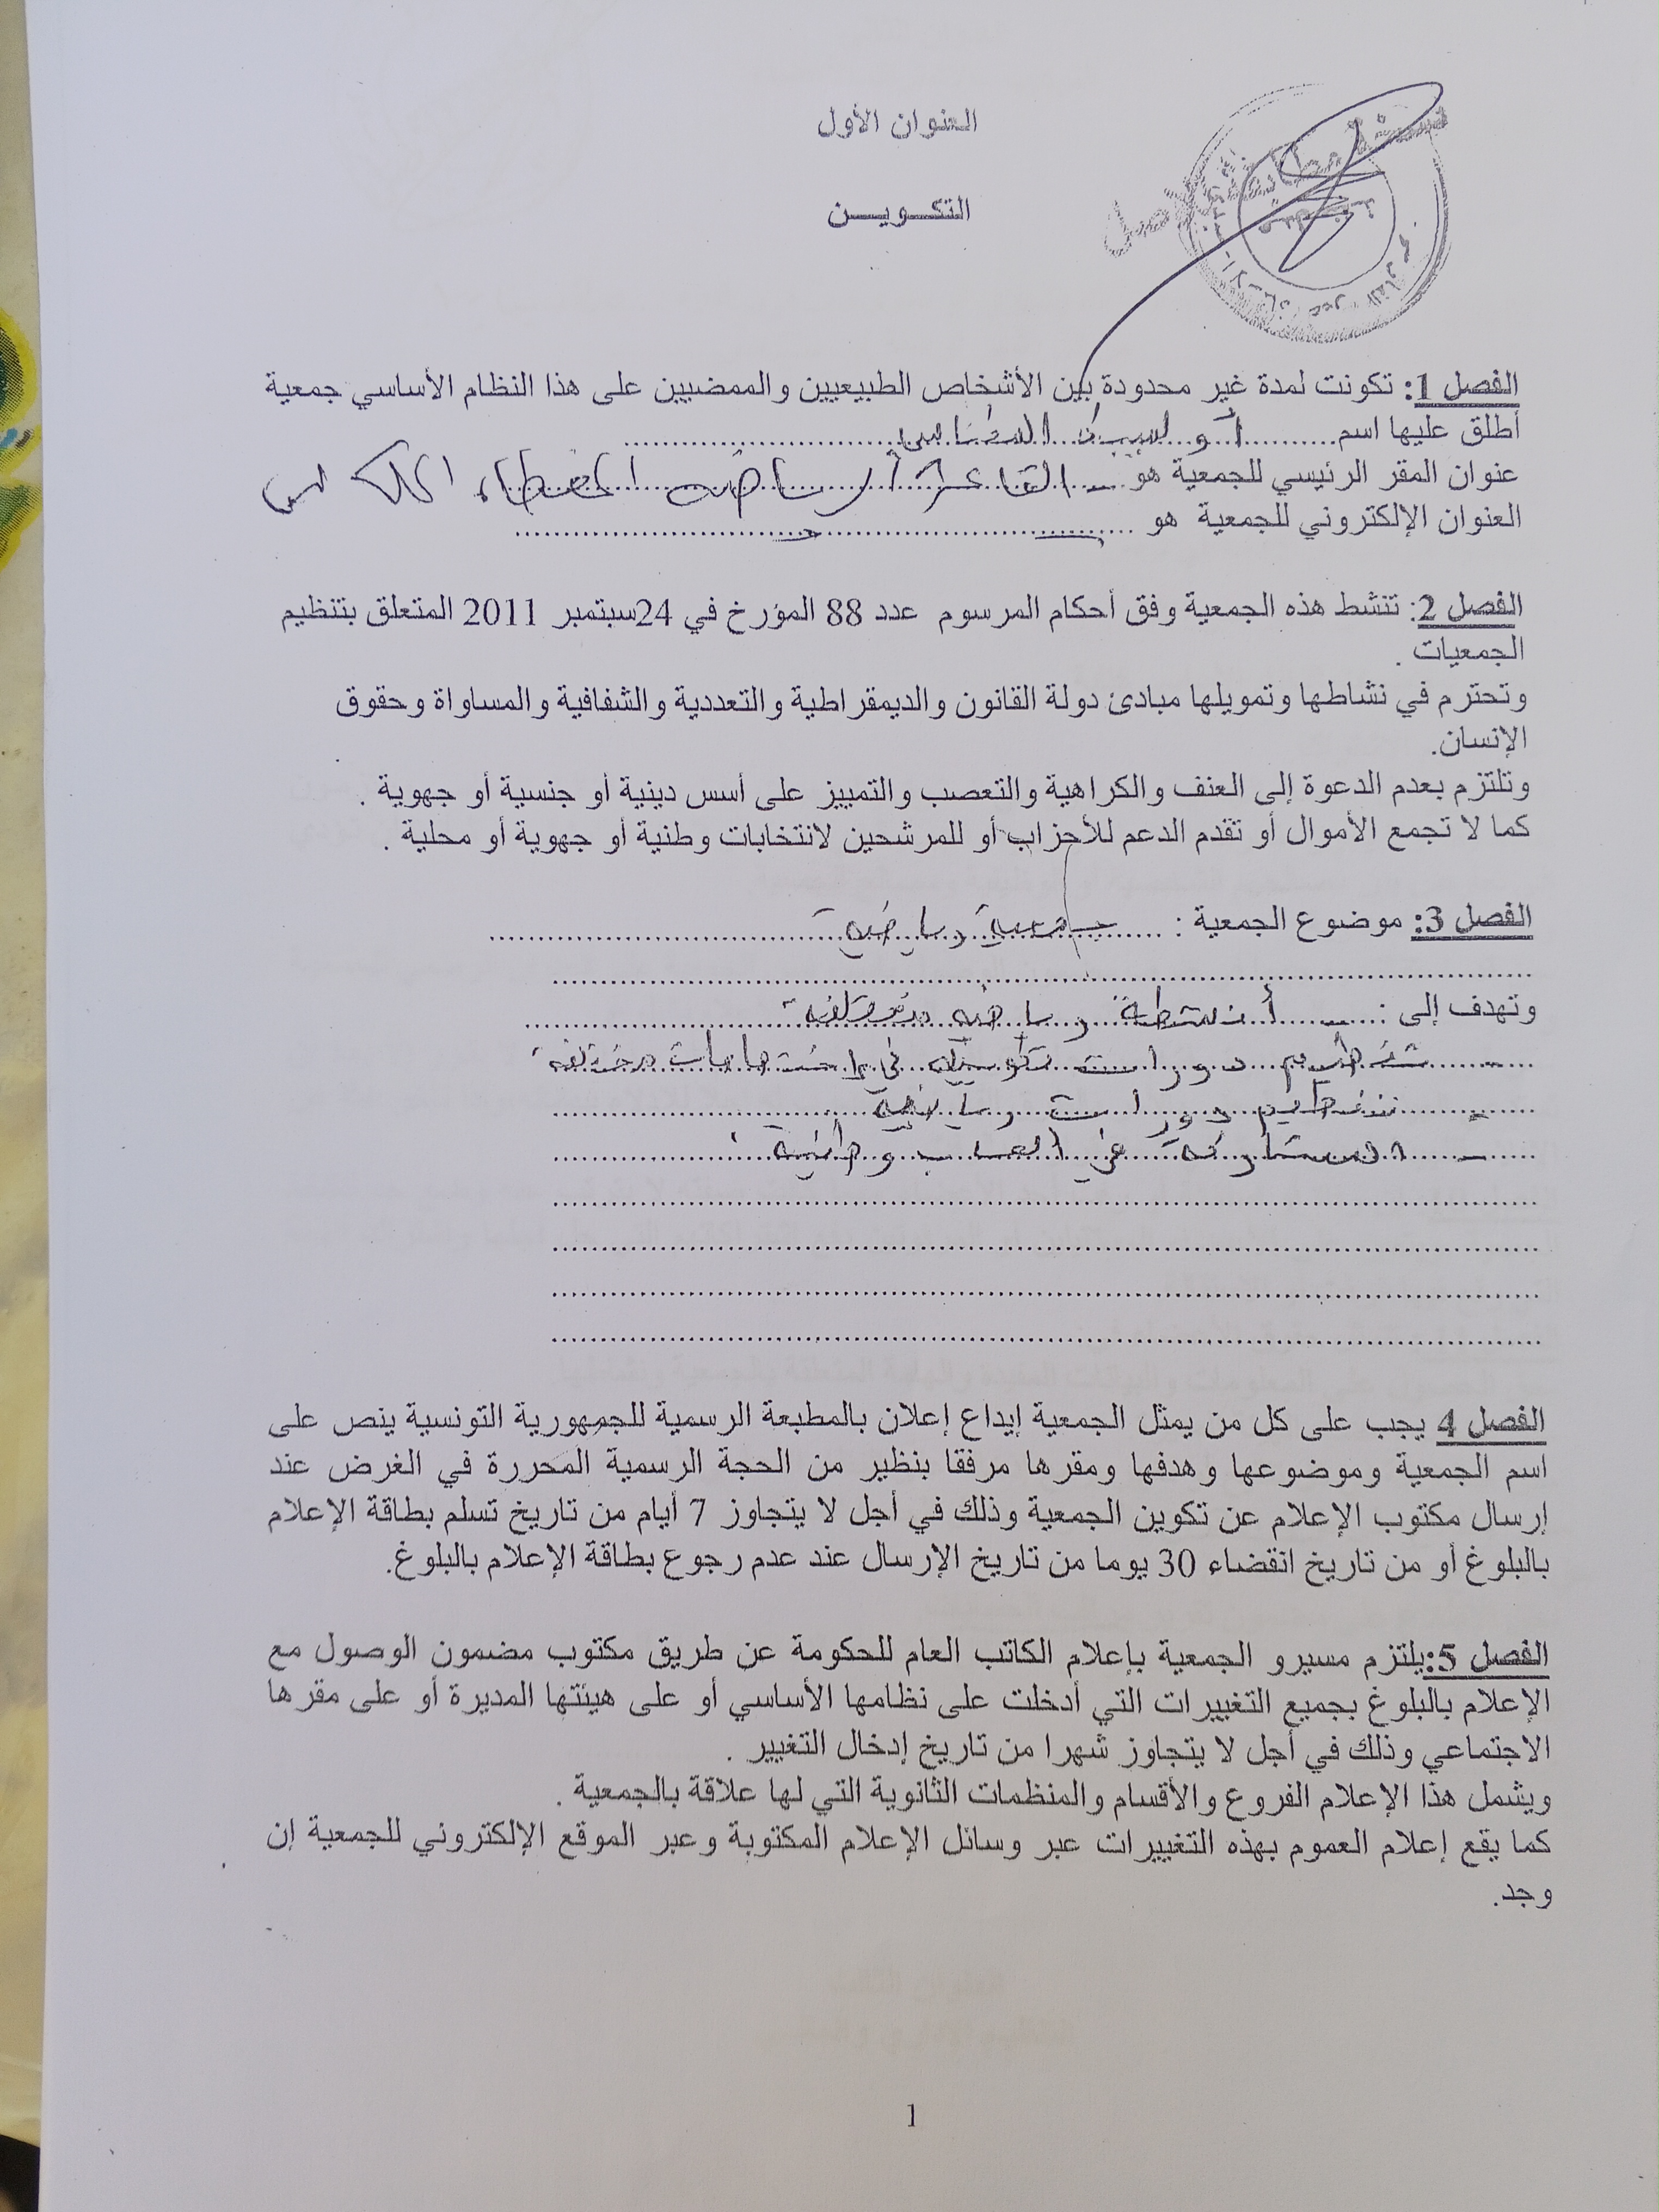 العنوان الأول
نسخة مطابقة للأصل
التكويـــن
الفصل 1: تكونت لمدة غير محدودة بين الأشخاص الطبيعيين والممضيين على هذا النظام الأساسي جمعية
أطلق عليها اسم
عنوان المقر الرئيسي للجمعية هو القاعة الرياضية المغطاة
العنوان الإلكتروني للجمعية هو
الفصل 2: تنشط هذه الجمعية وفق أحكام المرسوم عدد 88 المؤرخ في 24سبتمبر 2011 المتعلق بتنظيم
الجمعيات .
وتحترم في نشاطها وتمويلها مبادئ دولة القانون والديمقراطية والتعددية والشفافية والمساواة وحقوق
الإنسان.
وتلتزم بعدم الدعوة إلى العنف والكراهية والتعصب والتمييز على أسس دينية أو جنسية أو جهوية .
كما لا تجمع الأموال أو تقدم الدعم للأحزاب أو للمرشحين لانتخابات وطنية أو جهوية أو محلية .
الفصل 3: موضوع الجمعية : جمعية رياضية
وتهدف إلى : - أنشطة رياضية
- تنظيم دورات تكوينية في اختصاصات مختلفة
- تنظيم دورات رياضية
- المشاركة في العاب وطنية
الفصل 4 يجب على كل من يمثل الجمعية إيداع إعلان بالمطبعة الرسمية للجمهورية التونسية ينص على
اسم الجمعية وموضوعها وهدفها ومقرها مرفقا بنظير من الحجة الرسمية المحررة في الغرض عند
إرسال مكتوب الإعلام عن تكوين الجمعية وذلك في أجل لا يتجاوز 7 أيام من تاريخ تسلم بطاقة الإعلام
بالبلوغ أو من تاريخ انقضاء 30 يوما من تاريخ الإرسال عند عدم رجوع بطاقة الإعلام بالبلوغ.
الفصل 5:يلتزم مسيرو الجمعية بإعلام الكاتب العام للحكومة عن طريق مكتوب مضمون الوصول مع
الإعلام بالبلوغ بجميع التغييرات التي أدخلت على نظامها الأساسي أو على هيئتها المديرة أو على مقرها
الاجتماعي وذلك في أجل لا يتجاوز شهرا من تاريخ إدخال التغيير .
ويشمل هذا الإعلام الفروع والأقسام والمنظمات الثانوية التي لها علاقة بالجمعية .
كما يقع إعلام العموم بهذه التغييرات عبر وسائل الإعلام المكتوبة وعبر الموقع الإلكتروني للجمعية إن
وجد.
1